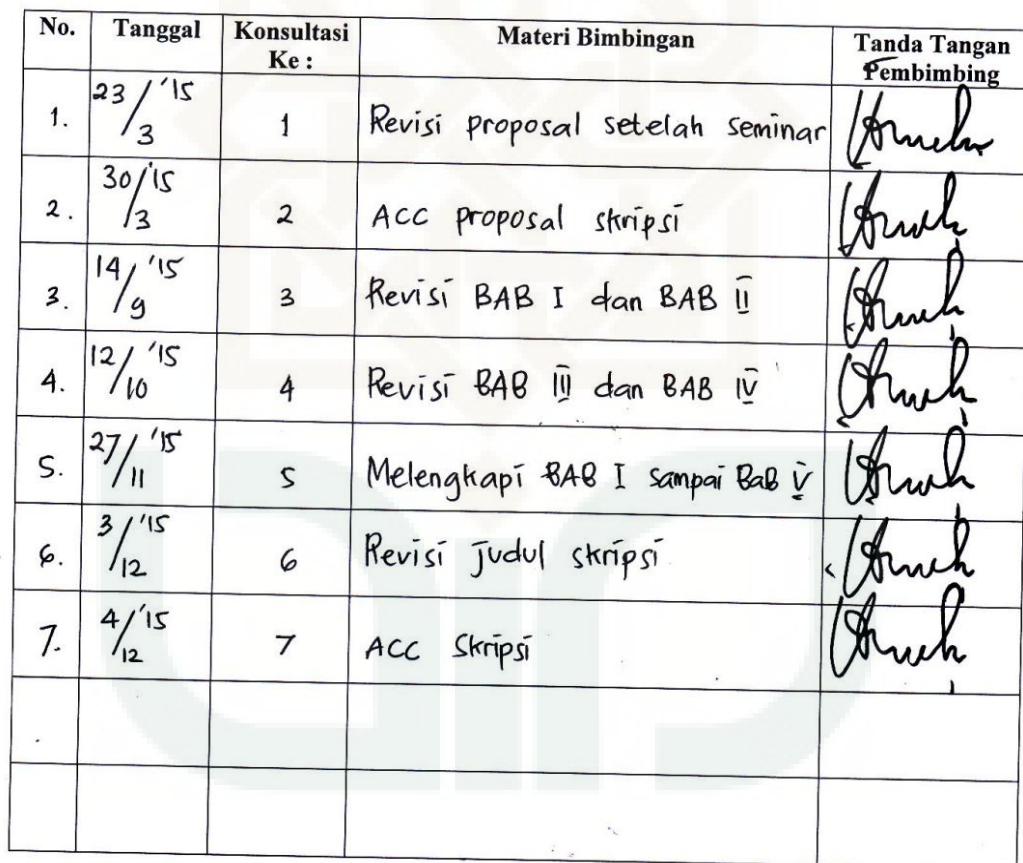 No. Tanggal Konsultasi Ke : Materi Bimbingan Tanda Tangan Pembimbing
1. 23/3 '15 1 Revisi proposal setelah seminar
2. 30/3 '15 2 ACC proposal skripsi
3. 14/9 '15 3 Revisi BAB I dan BAB II
4. 12/10 '15 4 Revisi BAB III dan BAB IV
5. 27/11 '15 5 Melengkapi BAB I sampai Bab V
6. 3/12 '15 6 Revisi judul skripsi
7. 4/12 '15 7 ACC Skripsi